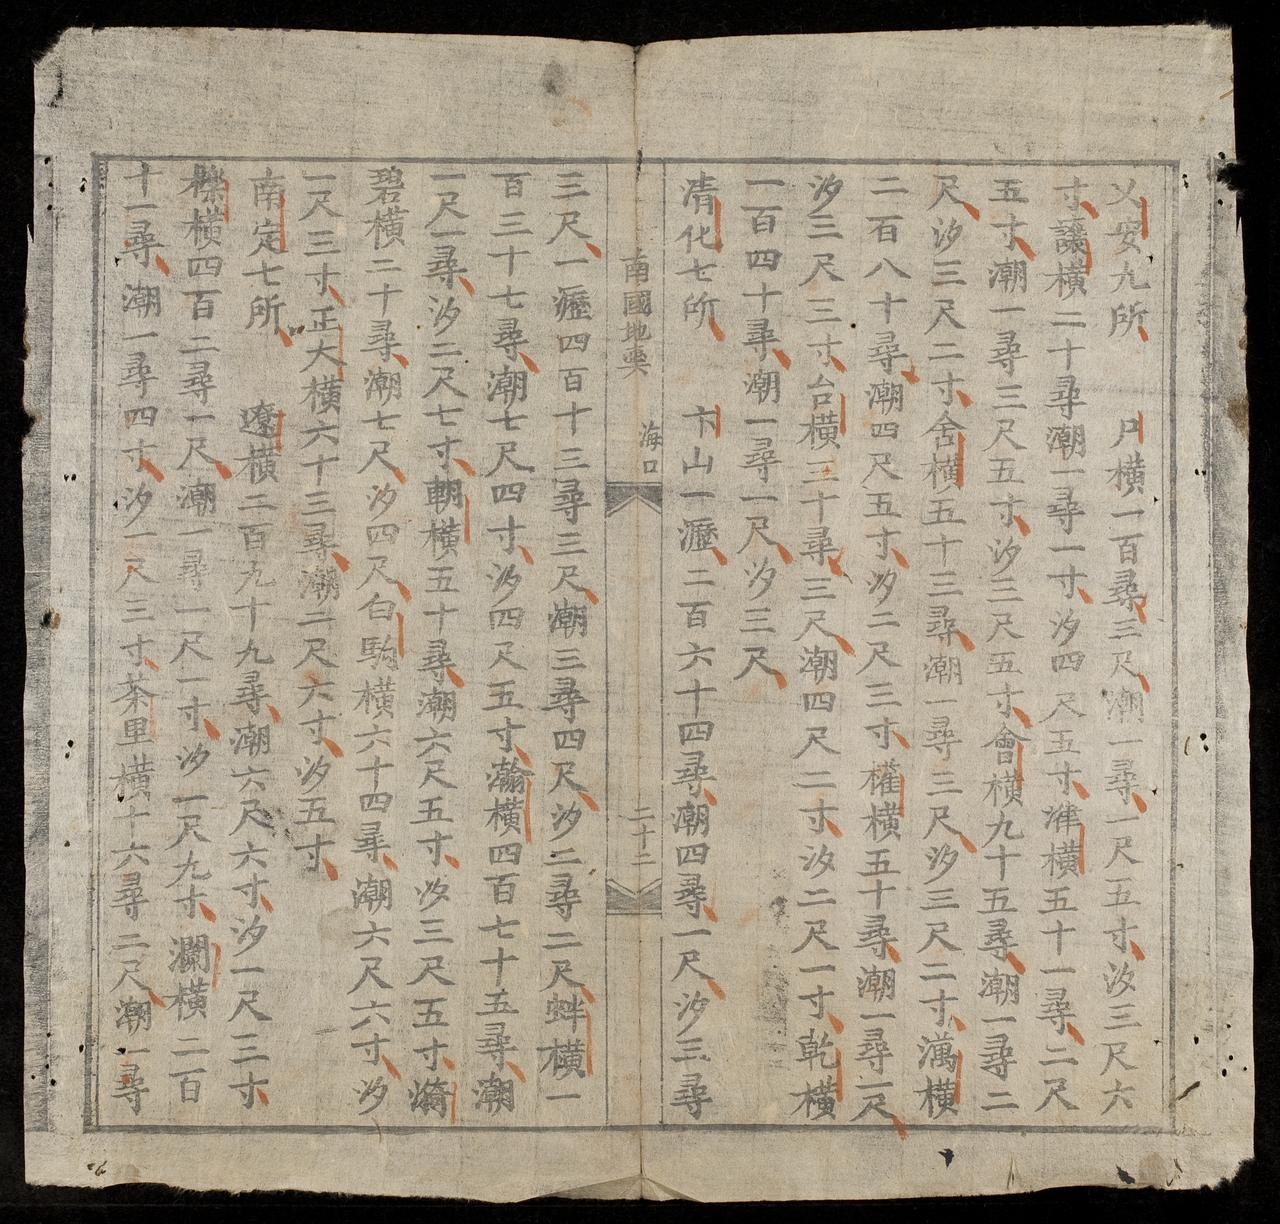 乂安九所 尸橫一百尋三尺潮一尋一尺五寸汐三尺六
寸讓橫二十尋潮一尋一寸汐四尺五寸準橫五十一尋二尺
五寸潮一尋三尺五寸汐三尺五寸會橫九十五尋潮一尋二
尺汐三尺二寸舍橫五十三尋潮一尋三尺汐三尺二寸澫橫
二百八十尋潮四尺五寸汐二尺三寸權橫五十尋潮一尋一尺
汐三尺三寸台橫三十尋三尺潮四尺二寸汐二尺一寸乾橫
一百四十尋潮一尋一尺汐三尺
清化七所 卞山一瀝二百六十四尋潮四尋一尺汐三尋
南國地輿 海口 二十二
三尺一瀝四百十三尋三尺潮三尋四尺汐二尋二尺蚌橫一
百三十七尋潮七尺四寸汐四尺五寸瀚橫四百七十五尋潮
一尺一尋汐二尺七寸朝橫五十尋潮六尺五寸汐三尺五寸漪
碧橫二十尋潮七尺汐四尺白駒橫六十四尋潮六尺六寸汐
一尺三寸正大橫六十三尋潮二尺六寸汐五寸
南定七所 遼橫三百九十九尋潮六尺六寸汐一尺三寸
橫四百二尋一尺潮一尋一尺一寸汐一尺九寸瀾橫二百
十一尋潮一尋四寸汐一尺三寸茶里橫十六尋二尺潮一尋